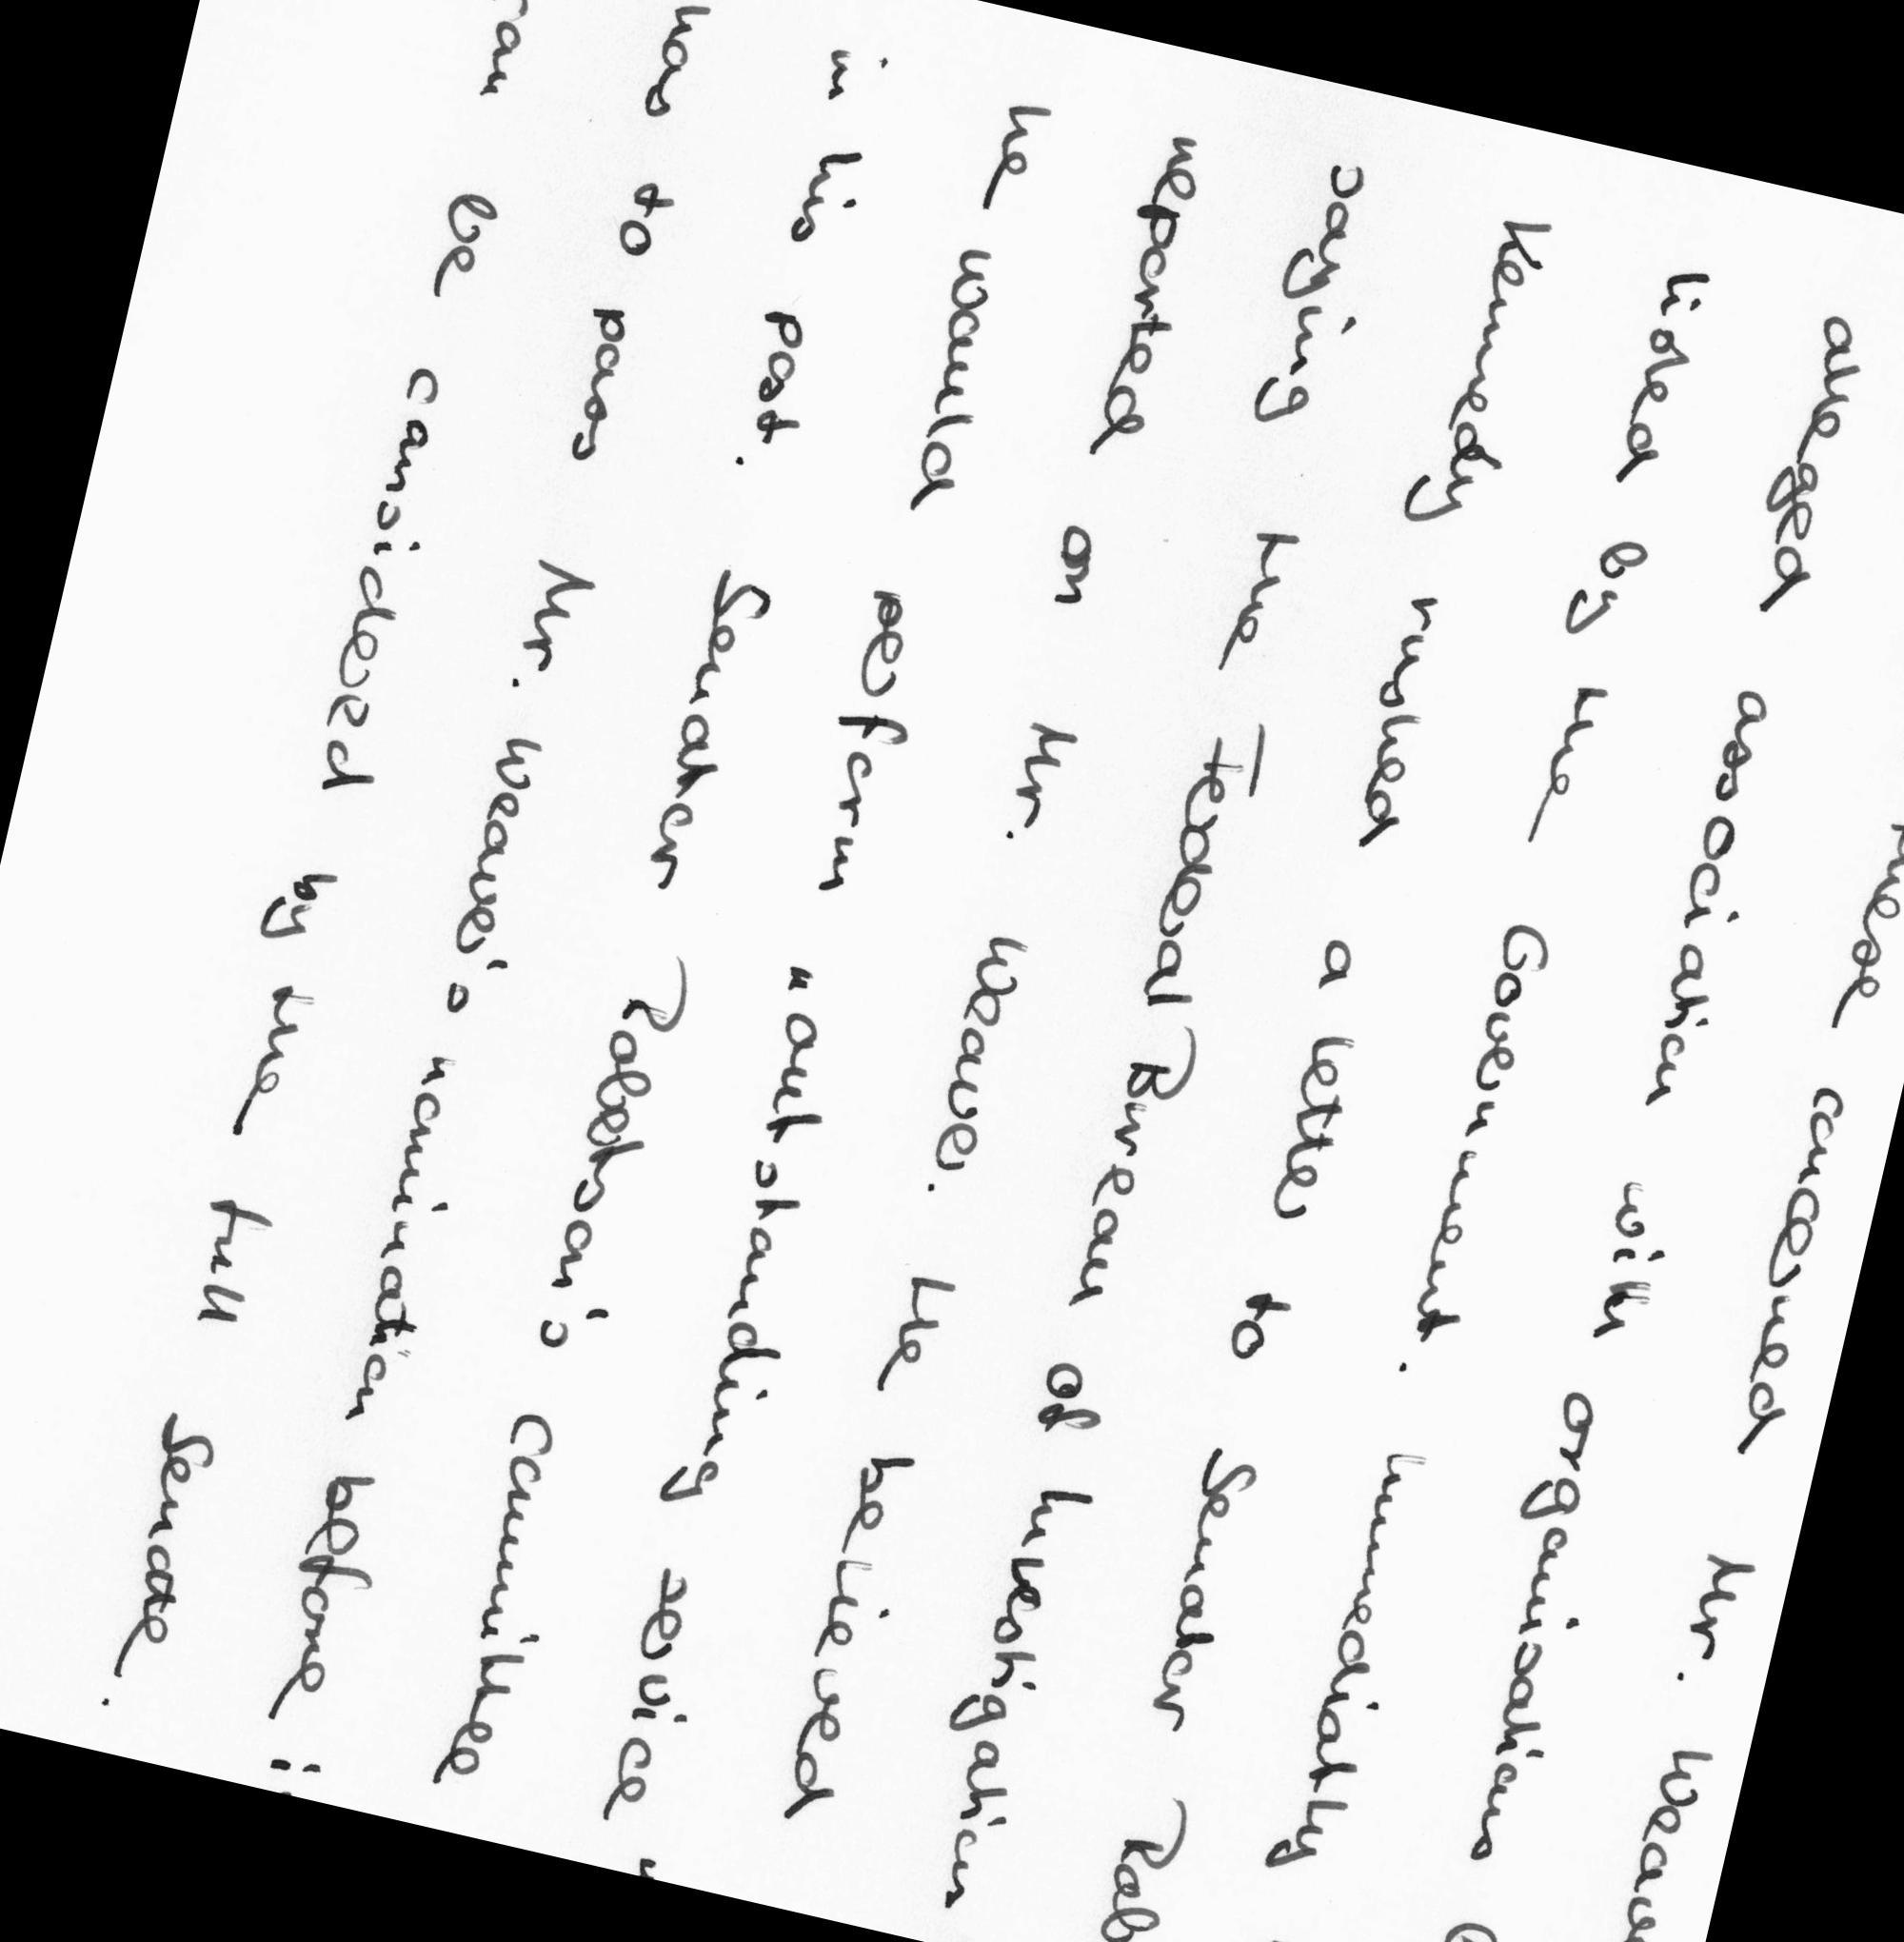 concerned Mr. Weav
alleged association with organisations
listed by the Government. Immediatly
Kennedy rushed a letter to Senator Rob
saying the Federal Bureau of Investigation
reported on Mr. Weaver. He believed
he would perform "outstanding service"
in his post. Senator Robertson's committee
has to pass Mr. Weaver's nomination before it
can be considered by the full Senate.